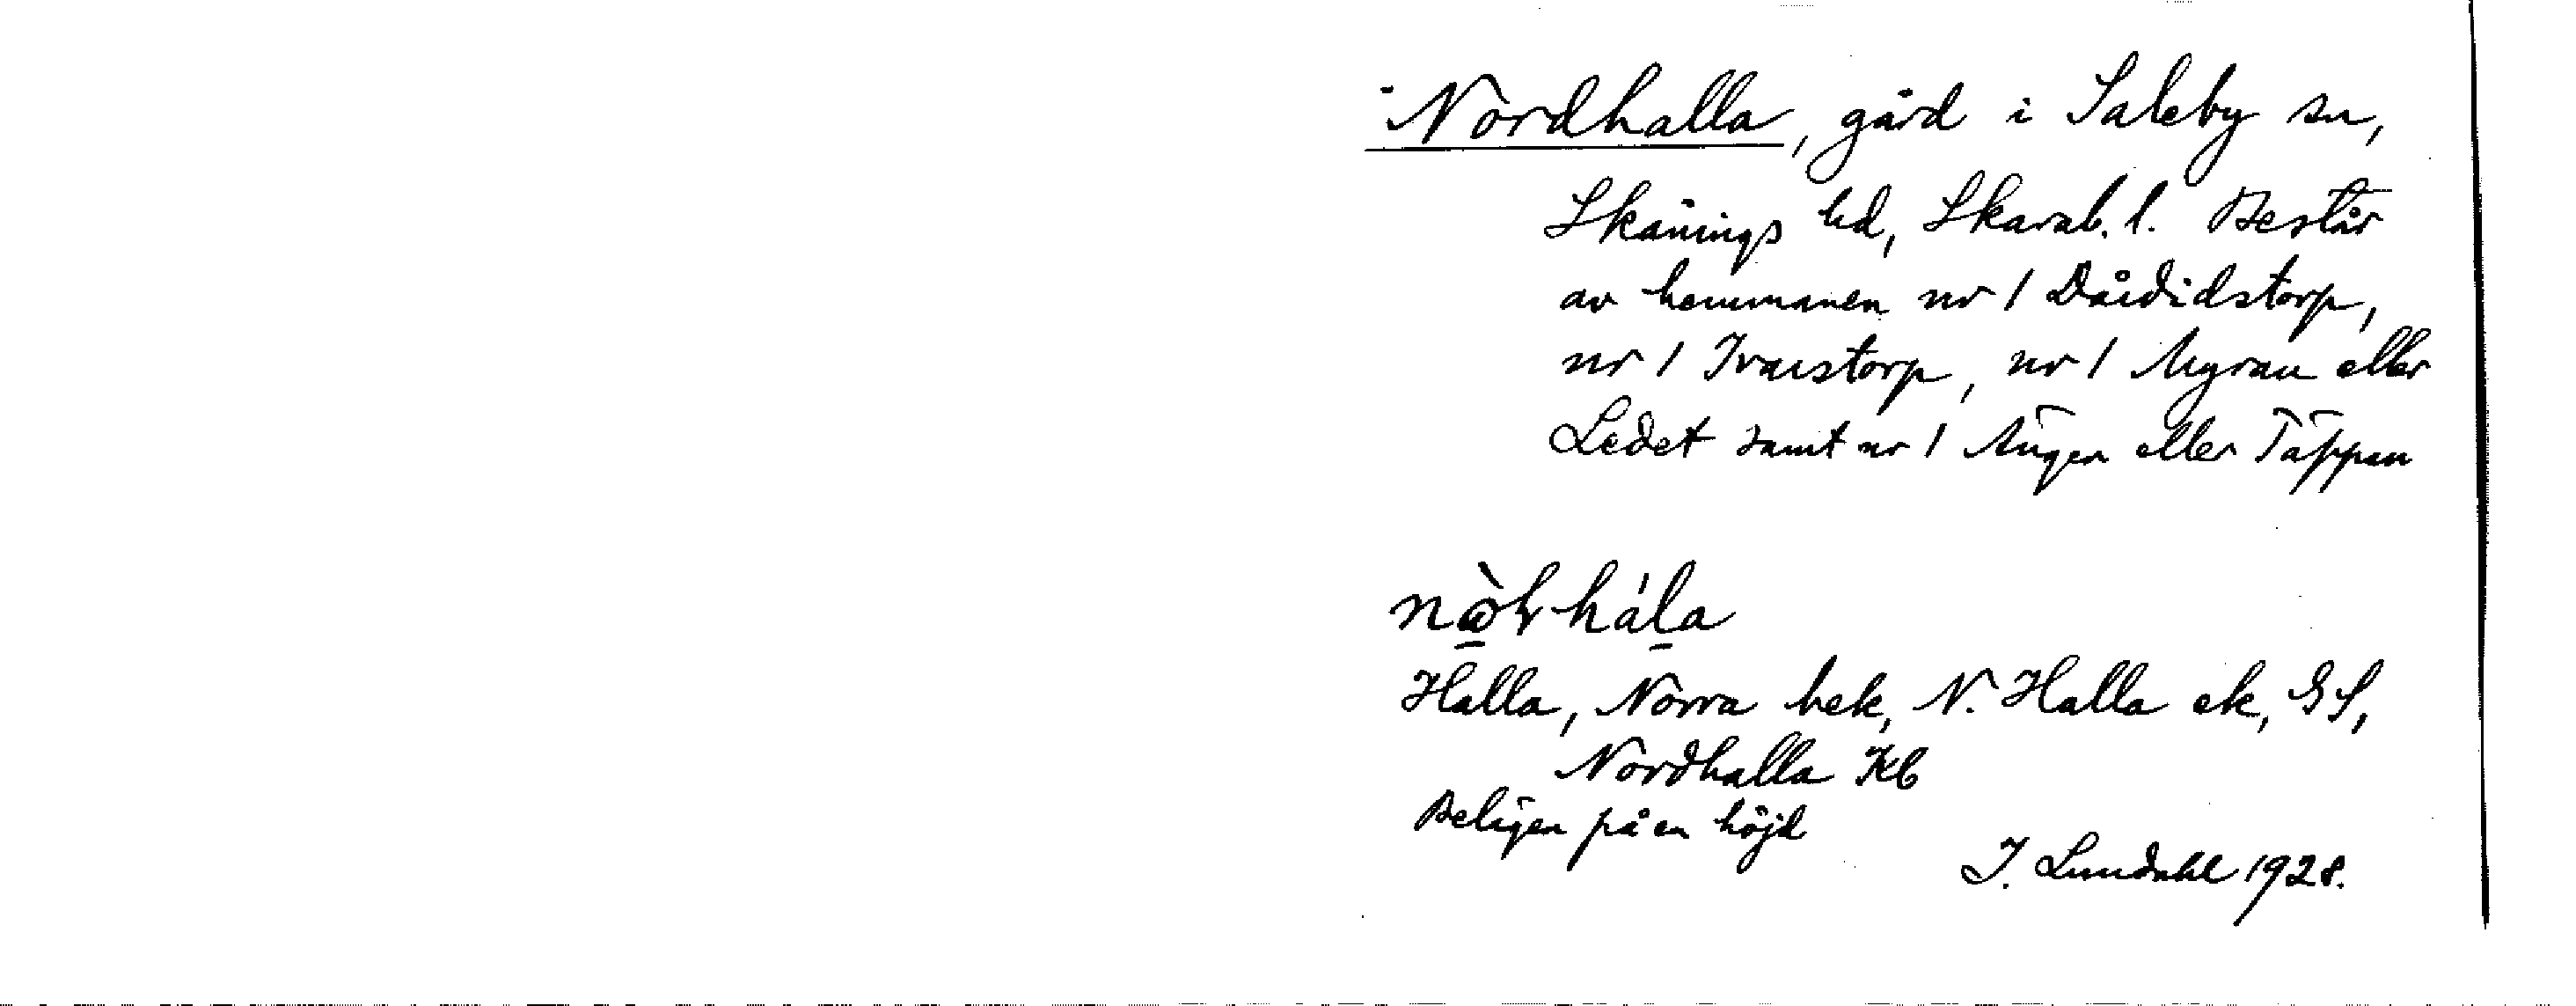 Nordhalla, gård i Saleby sn,
Skånings hd, Skarab. l. Består
av hemmanen nr 1 Davidstorp,
nr 1 Ivarstorp, nr 1 Myran eller
Ledet samt nr 1 Ängen eller Täppan
Halla, Norra bek, N. Halla ek, GS,
Nordhalla Kb
Beligen på en höjd
I. Lundahl 1928.